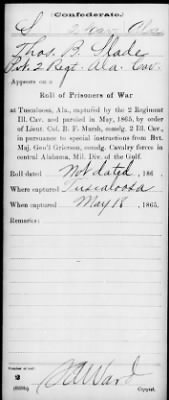 (Confederate.)
S 2 Cav. Ala.
Thos. B. Slade
Pvt. 2 Regt. Ala. Cav.
Appears on a
Roll of Prisoners of War
at Tuscaloosa, Ala., captured by the 2 Regiment
Ill. Cav. and paroled in May, 1865, by order
of Lieut. Col. B. F. Marsh, comdg. 2 Ill. Cav.,
in pursuance to special instructions from Bvt.
Maj. Gen'l Grierson, comdg. Cavalry forces in
central Alabama, Mil. Div. of the Gulf.
Roll dated Not dated, 186 .
Where captured Tuscaloosa
When captured May 18, 1865.
Remarks:
Number of roll:
2
Ward
Copyist.